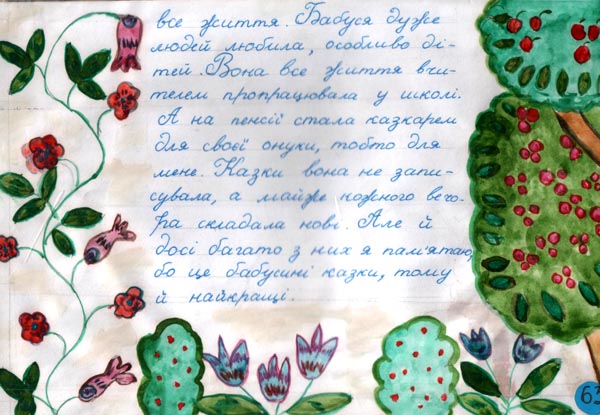 все життя. Бабуся дуже
людей любила, особливо ді-
тей. Вона все життя вчи-
телем пропрацювала у школі.
А на пенсії стала казкарем
для своєї онуки, тобто для
мене. Казки вона не запи-
сувала, а майже кожного вечо-
ра складала нові. Але й
досі багато з них я пам'ятаю,
бо це бабусині казки, тому
й найкращі.